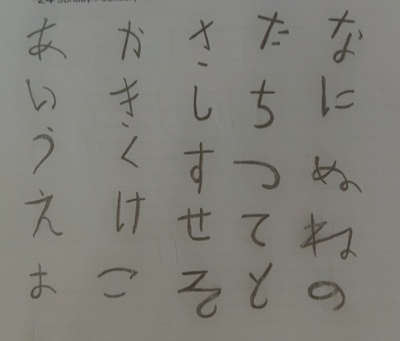 あ か さ た な
い き し ち に
う く す つ ぬ
え け せ て ね
お こ そ と の